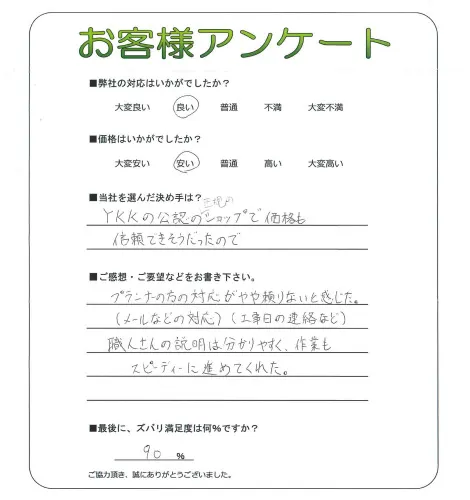 お客様アンケート
■弊社の対応はいかがでしたか？
大変良い 良い 普通 不満 大変不満
■価格はいかがでしたか？
大変安い 安い 普通 高い 大変高い
■当社を選んだ決め手は？
YKKの公認のショップで価格も
信頼できそうだったので
■ご感想・ご要望などをお書き下さい。
プランナーの方の対応がやや頼りないと感じた。
（メールなどの対応）（工事日の連絡など）
職人さんの説明は分かりやすく、作業も
スピーディーに進めてくれた。
■最後に、ズバリ満足度は何％ですか？
90 ％
ご協力頂き、誠にありがとうございました。